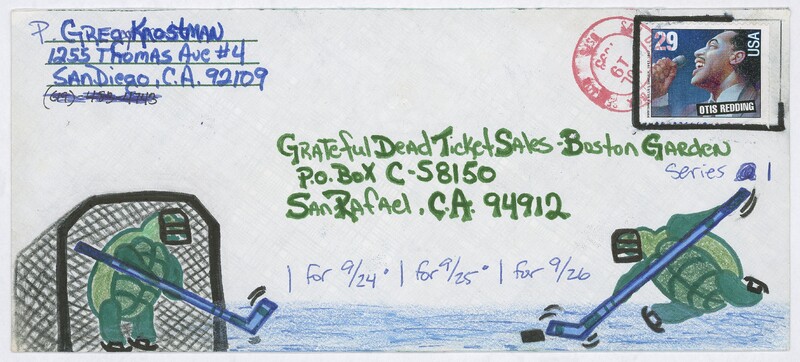 P. Greg Krostman
1255 Thomas Ave #4
San Diego, C.A. 92109
29
USA
OTIS REDDING
Grateful Dead Ticket Sales - Boston Garden
Series 1
P.O. Box C-S8150
San Rafael, C.A. 94912
1 for 9/24 · 1 for 9/25 · 1 for 9/26